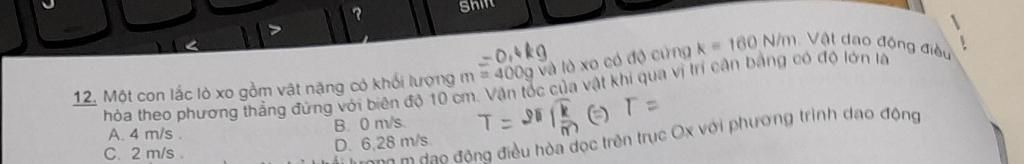 Shift
?
<
>
=0,4kg
12. Một con lắc lò xo gồm vật nặng có khối lượng m = 400g và lò xo có độ cứng k = 160 N/m. Vật dao động điều
hòa theo phương thẳng đứng với biên độ 10 cm. Vận tốc của vật khi qua vị trí cân bằng có độ lớn là
A. 4 m/s .
B. 0 m/s.
T = 2π √k/m (=) T =
C. 2 m/s .
D. 6,28 m/s
m dao động điều hòa dọc trên trục Ox với phương trình dao động